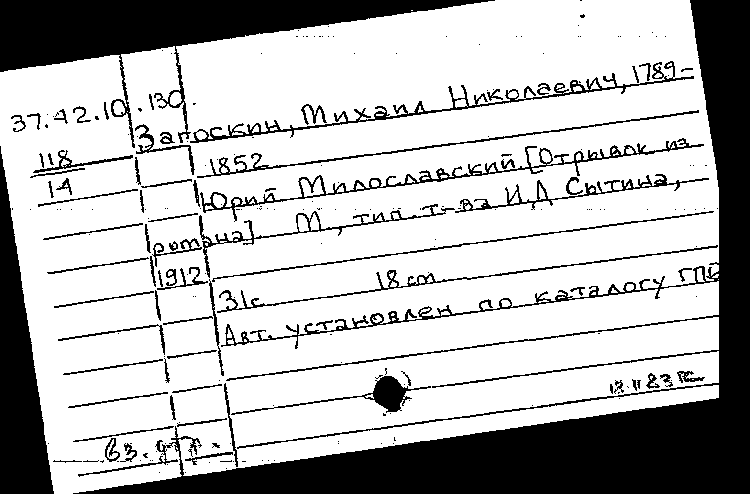 37.42.10.130.
Загоскин, Михаил Николаевич, 1789-
118
14
1852
Юрий Милославский. [Отрывок из
романа] М., тип. т-ва И.Д Сытина,
1912
31с 18 cm.
Авт. установлен по каталогу ГПБ